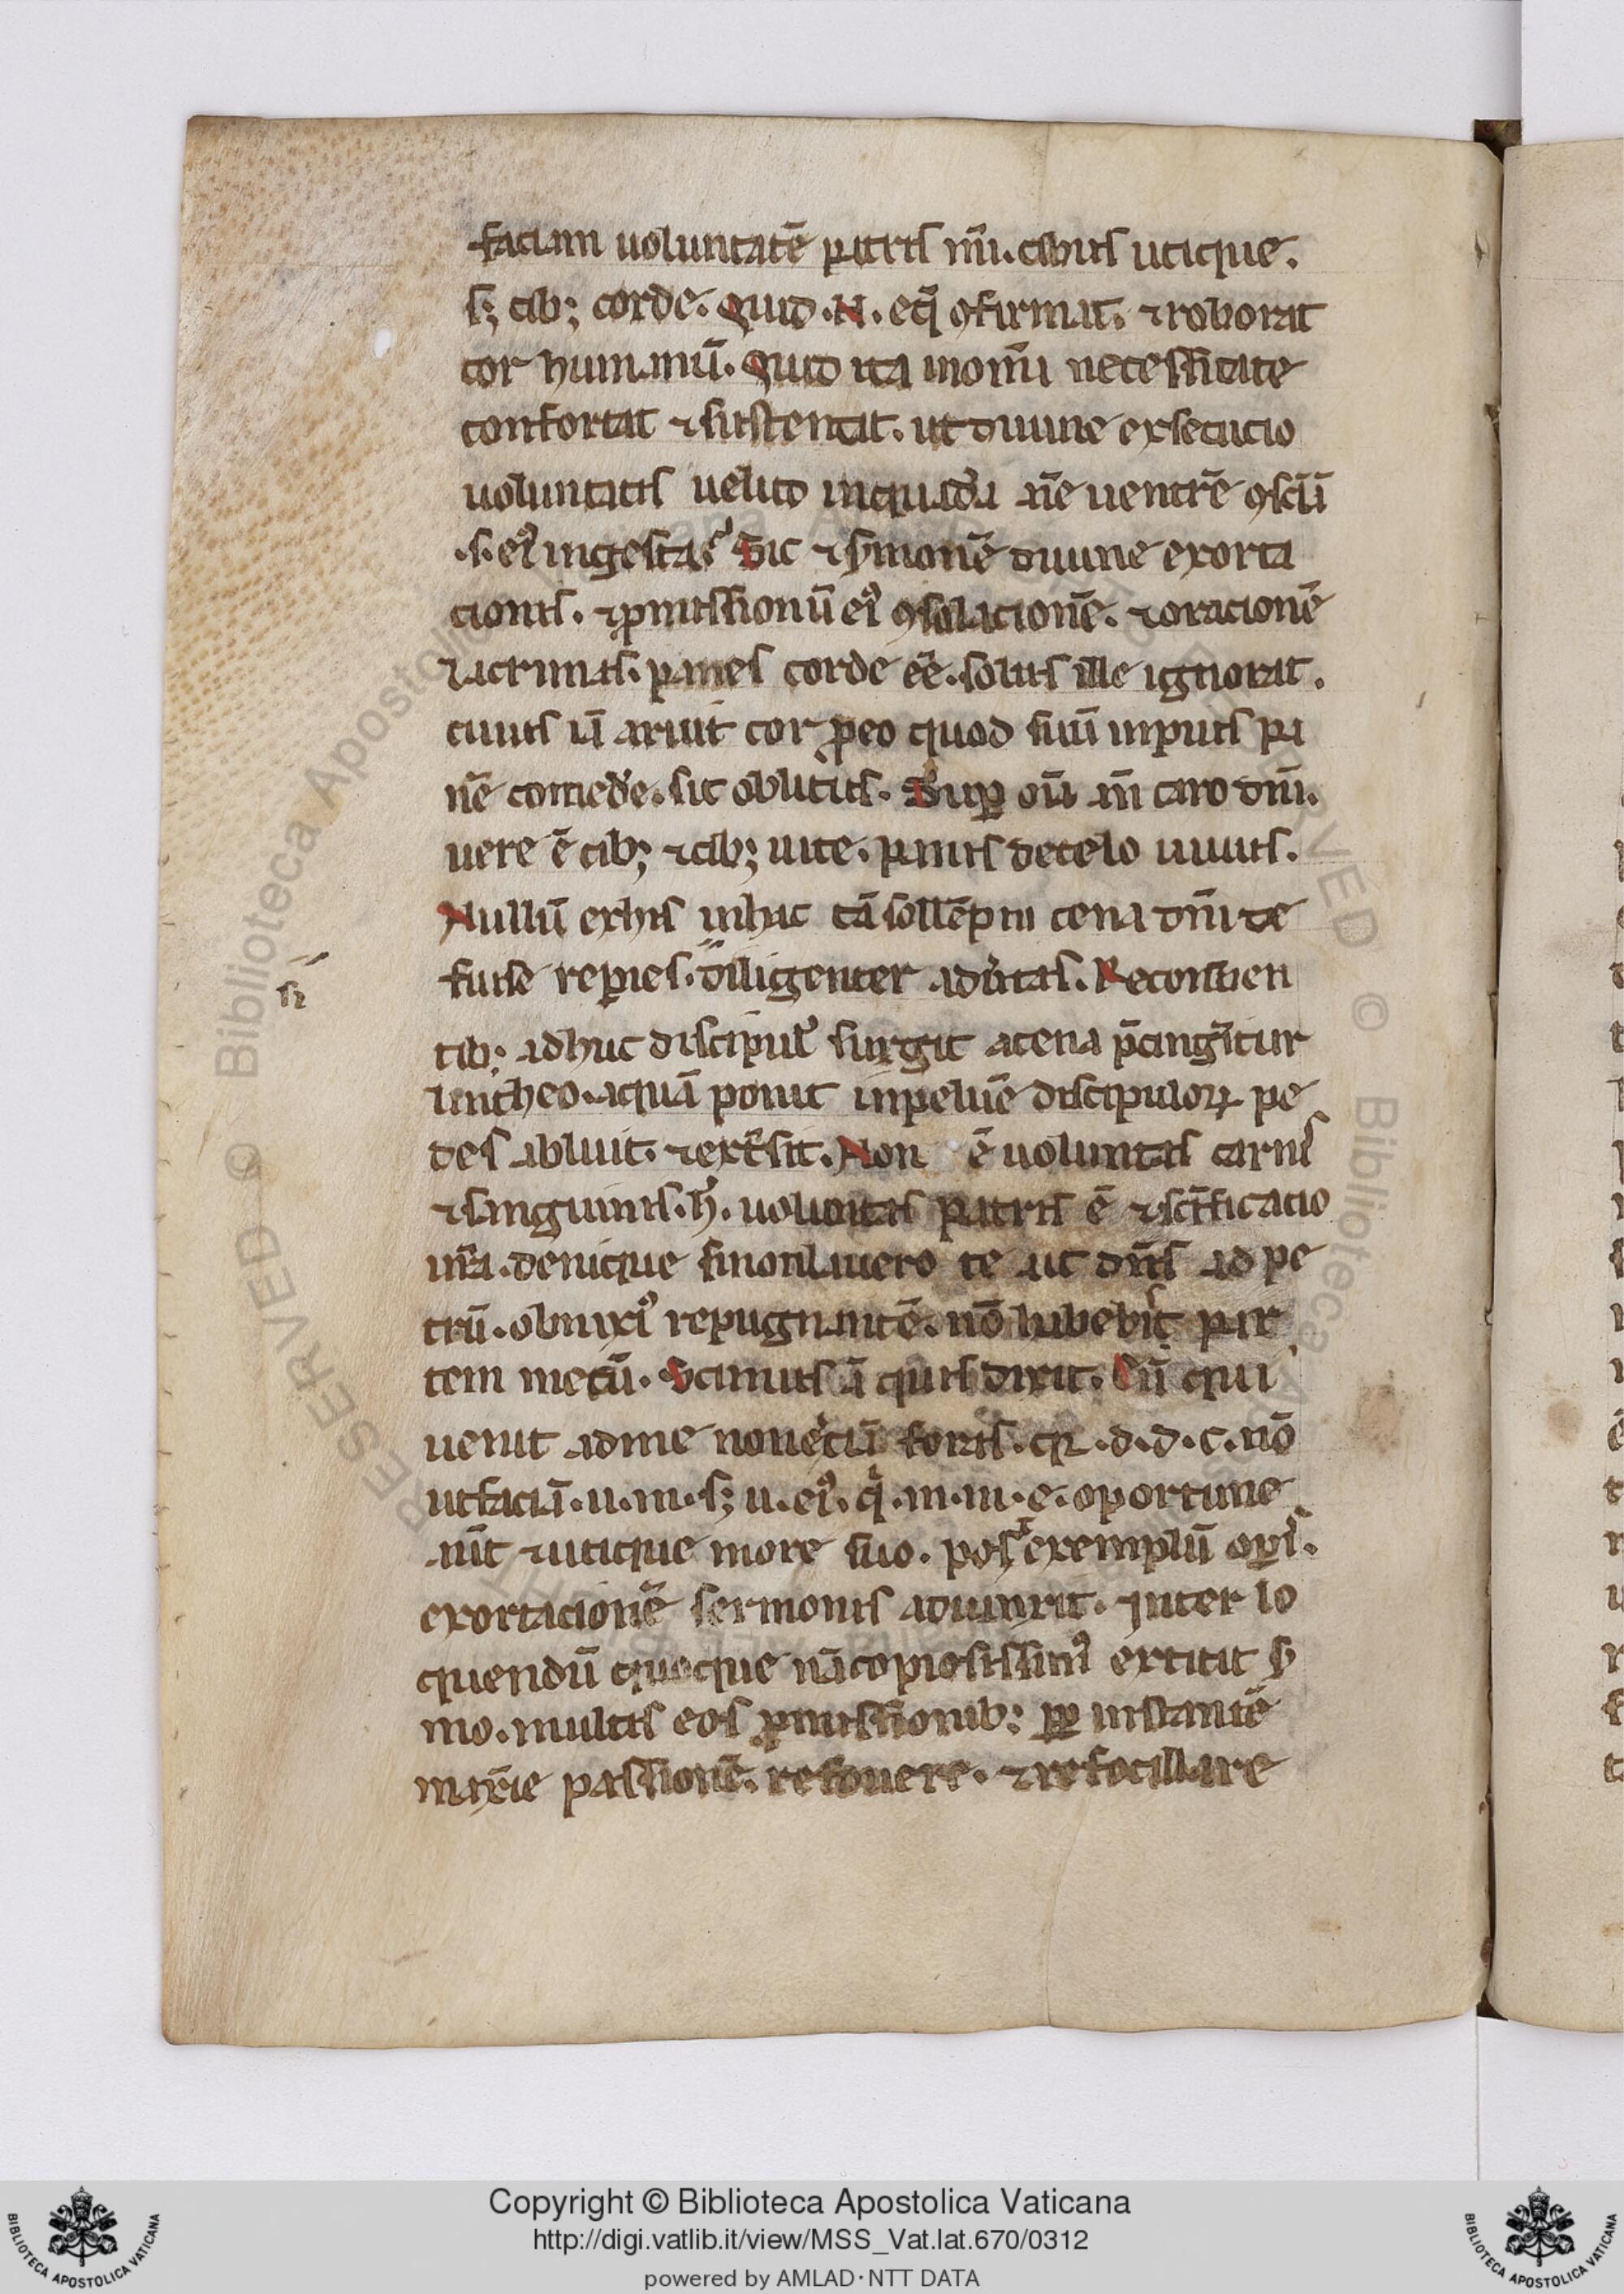 faciam uoluntatē patris mī. cibus utique.
s; cib; corde. Quid .N. eq̄ ꝯfirmat. ⁊ roborat
cor humanū. Quid ita inomni necessitate
confortat ⁊ sustentat. ut diuine exsecucio
uoluntatis uelud inquadā aīe uentrē ꝯsciā
.s. ei᷒ ingesta. Sic ⁊ s̄monē diuine exorta
cionis. ⁊ ꝓmissionū ei᷒ ꝯsolacionē. ⁊ oracionē
⁊ lacrimas. panes corde eē. solus ille ignorat.
cuius iā aruit cor ꝓeo quod suū inpius pa
nē comedē. sit oblitus. Suꝑ om̄ aū caro dn̄i.
uere ē cib; ⁊ cib; uite. panis decelo uiuus.
Nullū exhis inhac tā sollēpni cena dn̄i de
fuisse repies. diligenter aduertas. Reconben
tib; adhuc discipul᷒ surgit acena p̄cingitur
lintheo. aquā ponit inpeluē discipuloꝝ pe
des abluit. ⁊ ext̄sit. Non ē uoluntas carnis
⁊ sanguinis. h̄. uoluntas patris ē ⁊ sc̄ificacio
ur̄a. denique sinonlauero te ait dn̄s ad pe
trū. obnixi᷒ repugnantē. nō habebis par
tem mecū. Scimus ā quis dixit. Eū qui
uenit adme noneiciā foras. qꝛ .d.d.c. nō
utfaciā .u.m. s; u. ei᷒. q̇ .m.m.e. oportune
aūt ⁊ utique more suo. post exemplū oꝑis.
exortacionē sermonis adiunxit. Inter lo
quendū quoque nā copiosissim᷒ extitit s̄
mo. multis eos ꝓmissionib; ꝓꝑ instantē
maxīe passionē. refouere. ⁊ refocillare
Copyright © Biblioteca Apostolica Vaticana
http://digi.vatlib.it/view/MSS_Vat.lat.670/0312
powered by AMLAD · NTT DATA
BIBLIOTECA APOSTOLICA VATICANA
BIBLIOTECA APOSTOLICA VATICANA